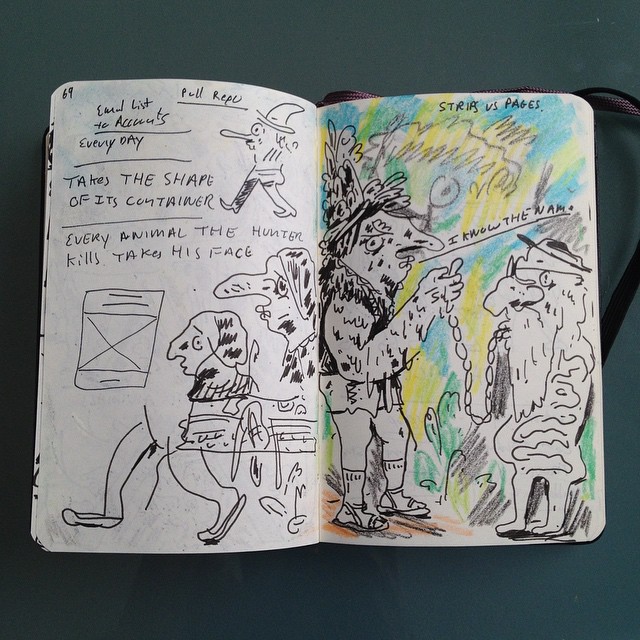 69
Email List
to Accounts
Pull Repo
Every DAY
TAKES THE SHAPE
OF ITS CONTAINER
EVERY ANIMAL THE HUNTER
KILLS TAKES HIS FACE
STRIPS VS PAGES.
I KNOW THE NAME.